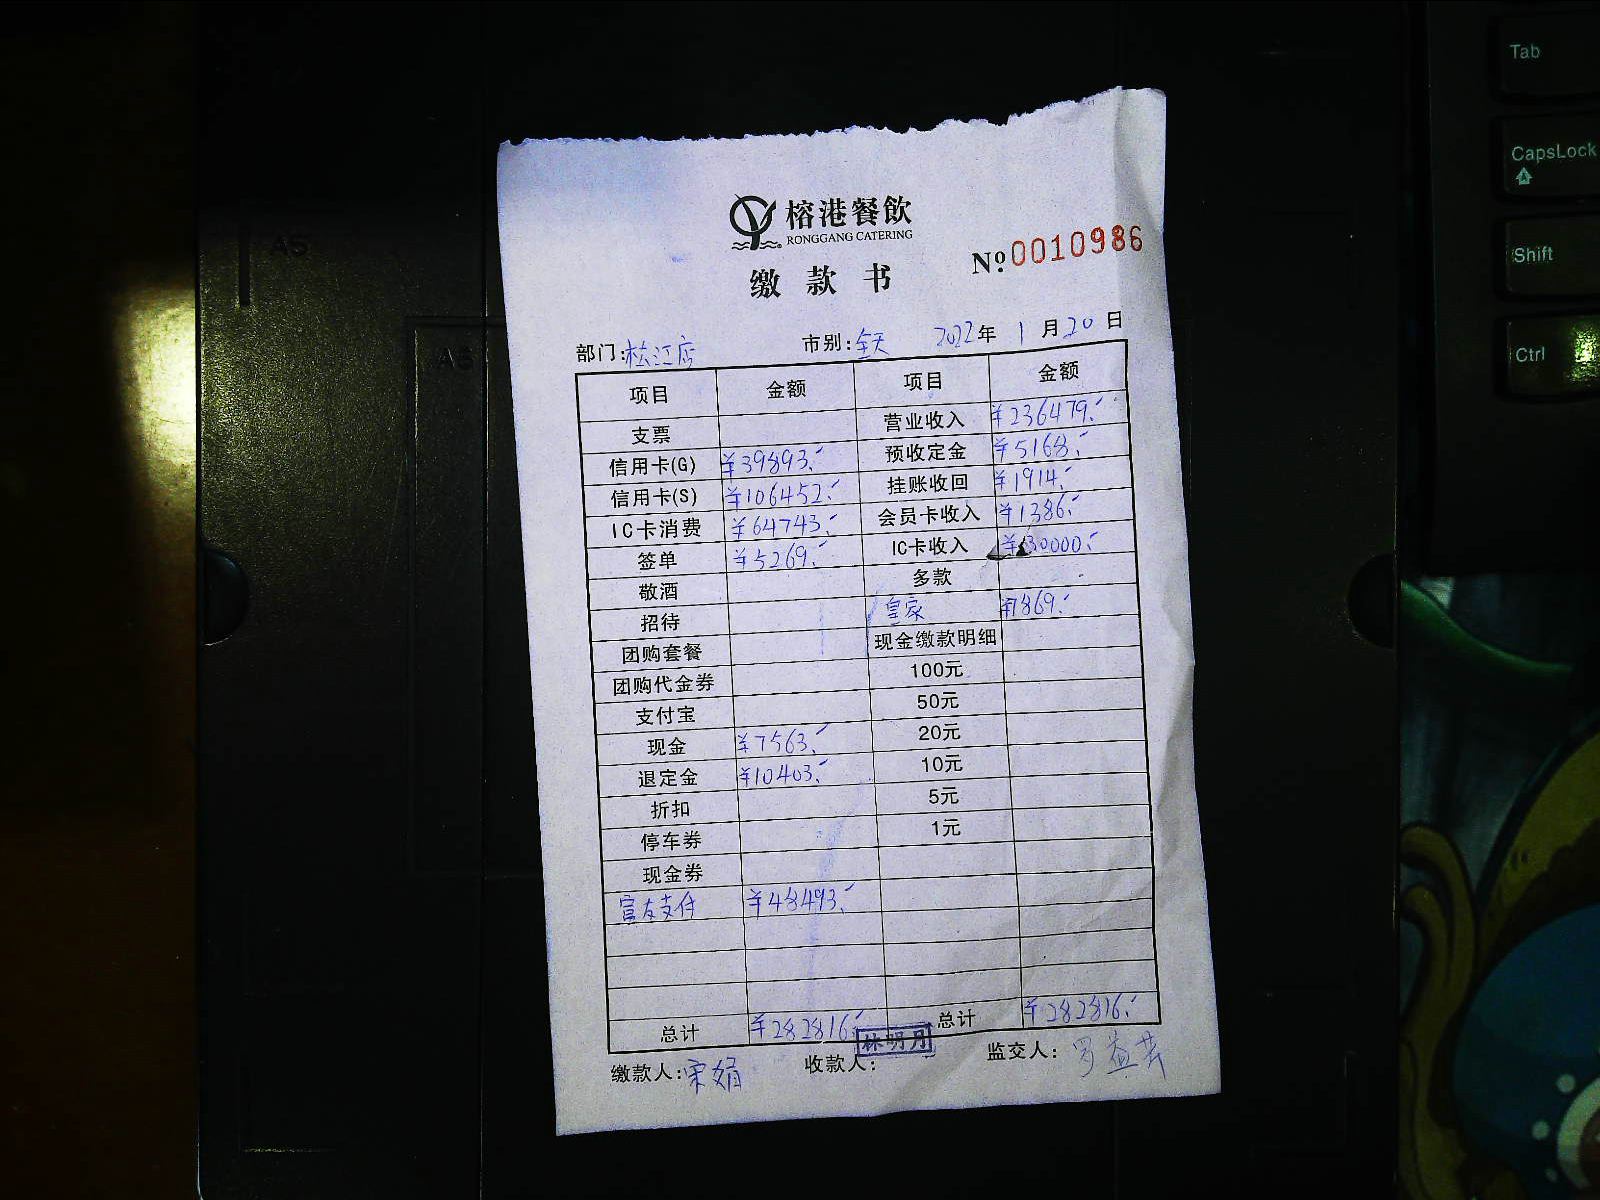 榕港餐飲
RONGGANG CATERING
缴款书 Nº 0010986
部门:松江店 市别:全天 2022年1月20日
项目 金额 项目 金额
支票 营业收入 ¥236479.-
信用卡(G) ¥39893.- 预收定金 ¥5168.-
信用卡(S) ¥106452.- 挂账收回 ¥1914.-
IC卡消费 ¥64743.- 会员卡收入 ¥1386.-
签单 ¥5269.- IC卡收入 ¥30000.-
敬酒 多款
招待 皇家 ¥7869.-
团购套餐 现金缴款明细
团购代金券 100元
支付宝 50元
现金 ¥7563.- 20元
退定金 ¥10403.- 10元
折扣 5元
停车券 1元
现金券
富友支付 ¥48493.-
总计 ¥282816.- 总计 ¥282816.-
缴款人:宋娟 收款人:林明月 监交人:
Tab
CapsLock
Shift
Ctrl
A5
A5